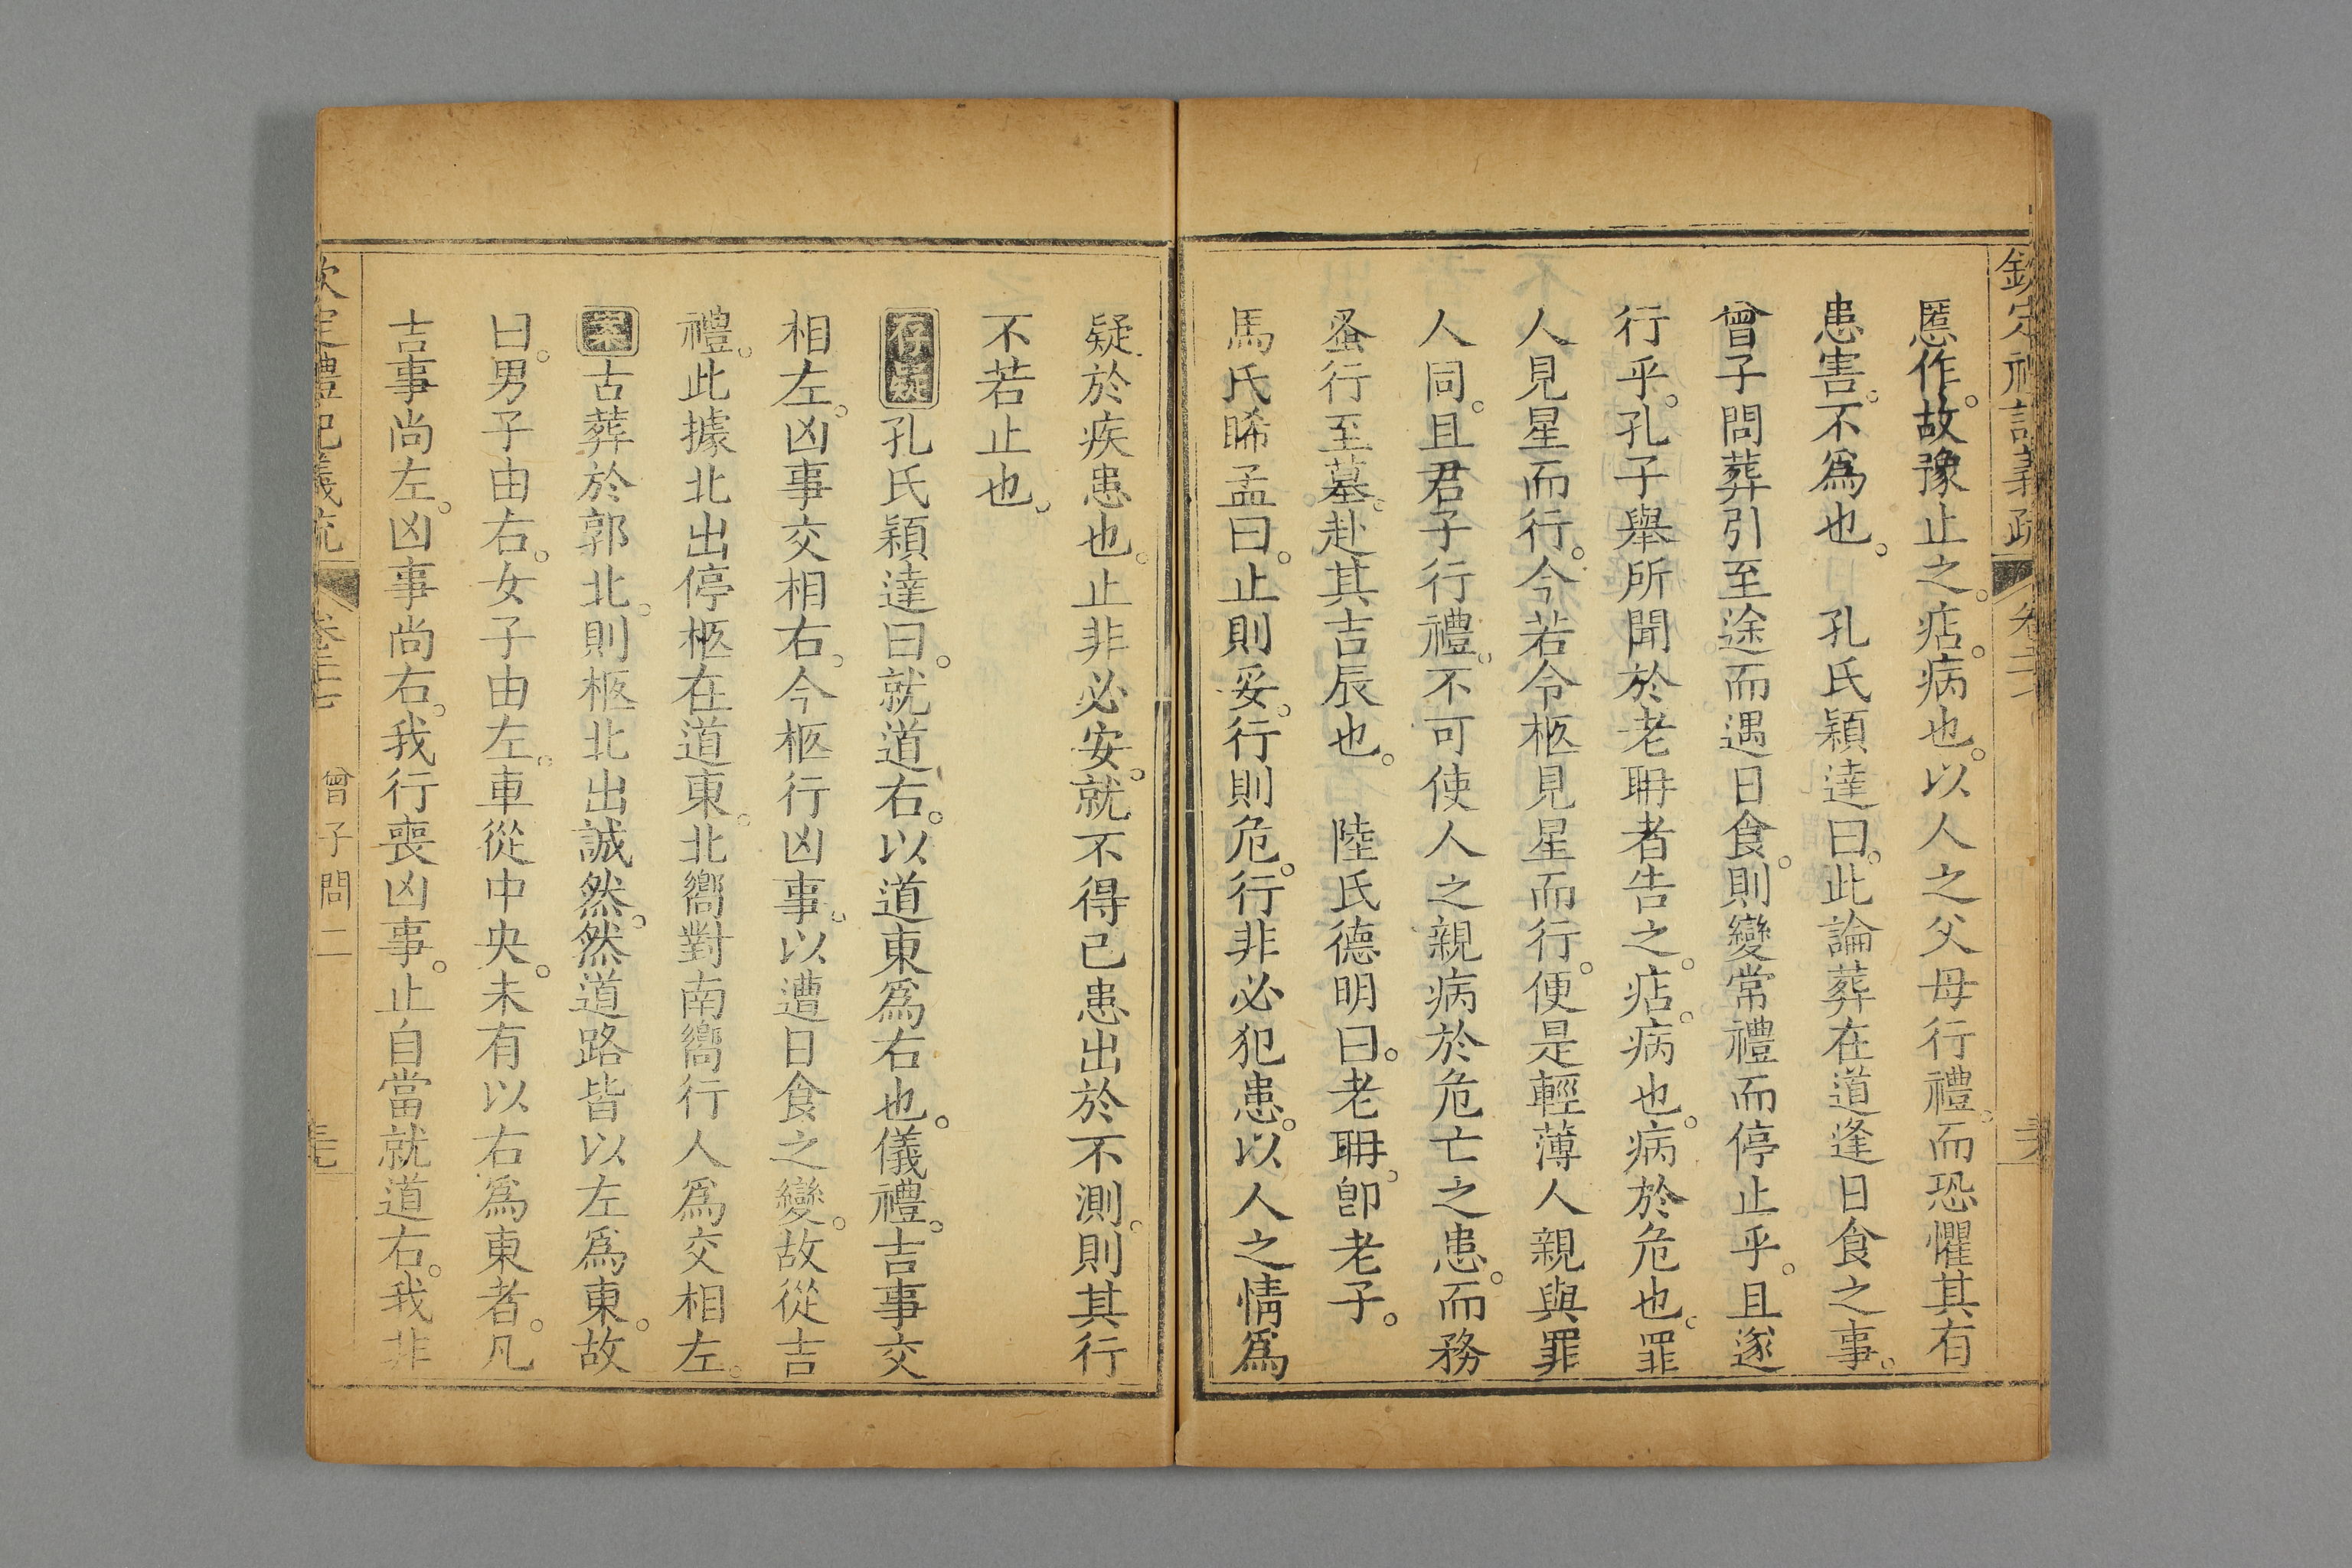 欽定禮記義疏 卷二十七
慝作。故豫止之。痁。病也。以人之父母行禮。而恐懼其有
患害。不爲也。 孔氏穎達曰。此論葬在道逢日食之事。
曾子問葬引至途而遇日食。則變常禮而停止乎。且遂
行乎。孔子舉所聞於老耼者告之。痁。病也。病於危也。罪
人見星而行。今若令柩見星而行。便是輕薄人親與罪
人同。且君子行禮。不可使人之親病於危亡之患。而務
蚤行至墓。赴其吉辰也。 陸氏德明曰。老耼。卽老子。
馬氏晞孟曰。止則妥。行則危。行非必犯患。以人之情爲
疑於疾患也。止非必安。就不得已患出於不測。則其行
不若止也。
存疑孔氏穎達曰。就道右。以道東爲右也。儀禮。吉事交
相左。凶事交相右。今柩行凶事。以遭日食之變。故從吉
禮。此據北出停柩在道東。北嚮對南嚮行人爲交相左。
案古葬於郭北。則柩北出誠然。然道路皆以左爲東。故
曰。男子由右。女子由左。車從中央。未有以右爲東者。凡
吉事尚左。凶事尚右。我行喪凶事。止自當就道右。我非
欽定禮記義疏 卷二十七 曾子問二